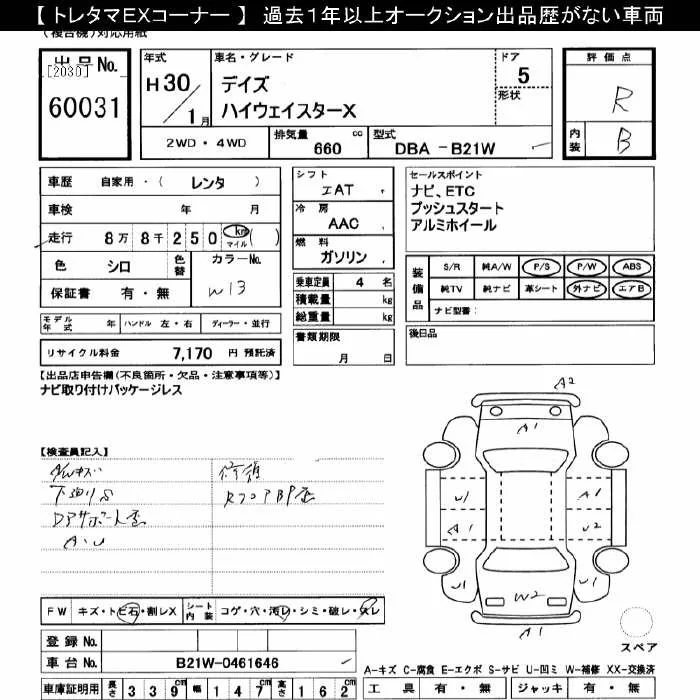 【 トレタマEXコーナー 】 過去１年以上オークション出品歴がない車両
(複合機)対応用紙
出 品 No.
[2030]
60031
年式
H 30 / 1 月
車名・グレード
デイズ
ハイウェイスターX
ドア
5
形状
評 価 点
R
内装
B
2WD ・ 4WD
排気量 660 cc
型式 DBA －B21W
車歴 自家用 ・ ( レンタ )
車検 年 月
走行 8 万 8 千 2 5 0 km マイル ( )
色 シロ 色替 カラーNo.
W13
保証書 有 ・ 無
モデル年式 年 ハンドル 左 ・ 右 ディーラー ・ 並行
リサイクル料金 7,170 円 預託済
シフト
エAT
冷 房
AAC
燃 料
ガソリン
乗車定員 4 名
積載量 kg
総重量 kg
書類期限
月 日
セールスポイント
ナビ、ETC
プッシュスタート
アルミホイール
装備品
S/R 純A/W P/S P/W ABS
純TV 純ナビ 革シート 外ナビ エアB
ナビ型番:
後日品
【出品店申告欄(不良箇所・欠品・注意事項等)】
ナビ取り付けパッケージレス
【検査員記入】
下廻りS
A・U
修復
A2
A1
U1
A1
A1
U2
U1
U1
W2
A1
スペア
F W キズ・トビ石・割レX シート内装 コゲ・穴・汚レ・シミ・破レ・スレ
登 録 No.
車 台 No. B21W-0461646
車庫証明用 長さ 3 3 9 cm 幅 1 4 7 cm 高さ 1 6 2 cm
A-キズ C-腐食 E-エクボ S-サビ U-凹ミ W-補修 XX-交換済
工 具 有 ・ 無 ジャッキ 有 ・ 無